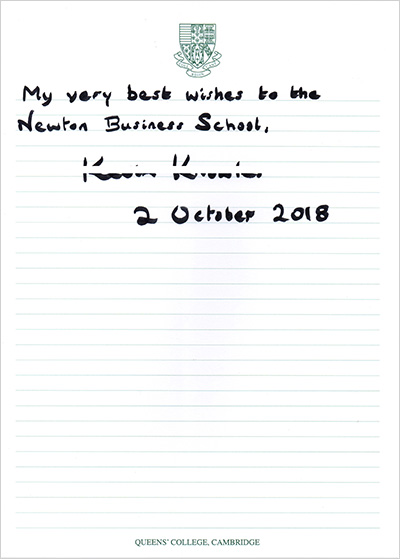 My very best wishes to the
Newton Business School,
2 October 2018
QUEENS' COLLEGE, CAMBRIDGE